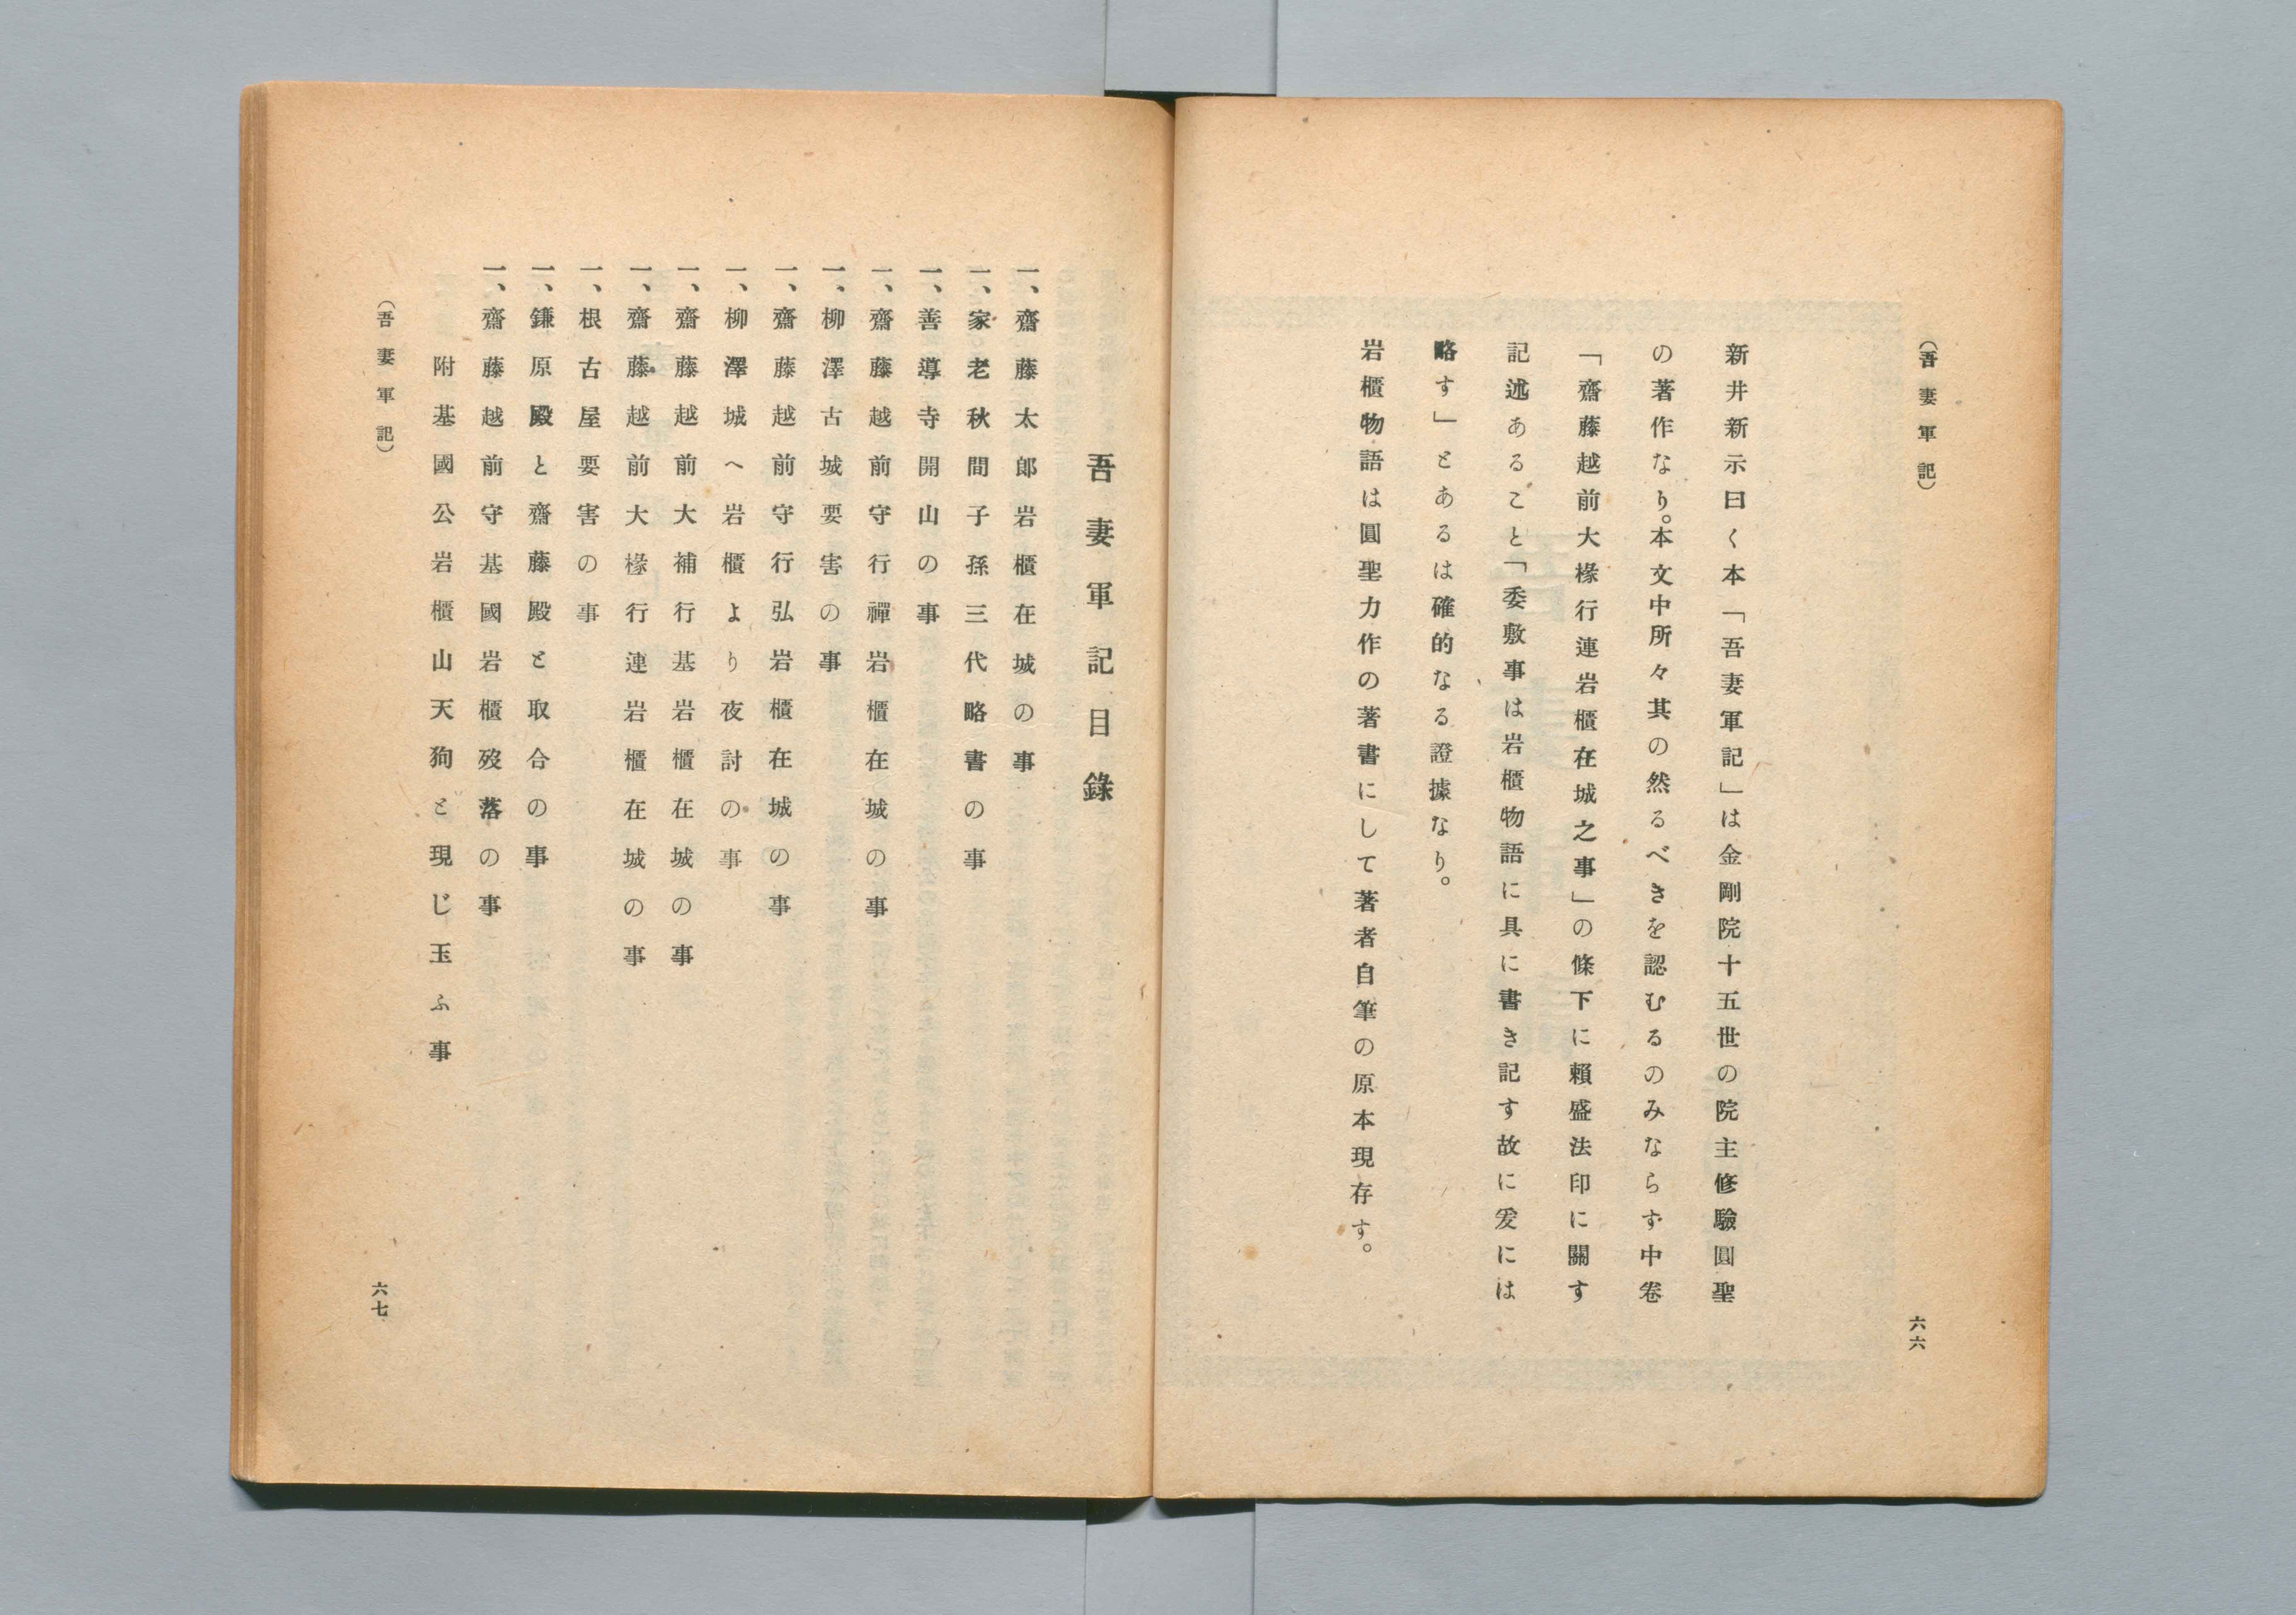 （吾妻軍記）
新井新示曰く本「吾妻軍記」は金剛院十五世の院主修驗圓聖
の著作なり。本文中所々其の然るべきを認むるのみならず中卷
「齋藤越前大椽行連岩櫃在城之事」の條下に賴盛法印に關す
記述あること「委敷事は岩櫃物語に具に書き記す故に爰には
略す」とあるは確的なる證據なり。
岩櫃物語は圓聖力作の著書にして著者自筆の原本現存す。
六六
吾妻軍記目錄
一、齋藤太郎岩櫃在城の事
一、家老秋間子孫三代略書の事
一、善導寺開山の事
一、齋藤越前守行禪岩櫃在城の事
一、柳澤古城要害の事
一、齋藤越前守行弘岩櫃在城の事
一、柳澤城へ岩櫃より夜討の事
一、齋藤越前大補行基岩櫃在城の事
一、齋藤越前大椽行連岩櫃在城の事
一、根古屋要害の事
一、鎌原殿と齋藤殿と取合の事
一、齋藤越前守基國岩櫃歿落の事
附基國公岩櫃山天狗と現じ玉ふ事
（吾妻軍記）
六七